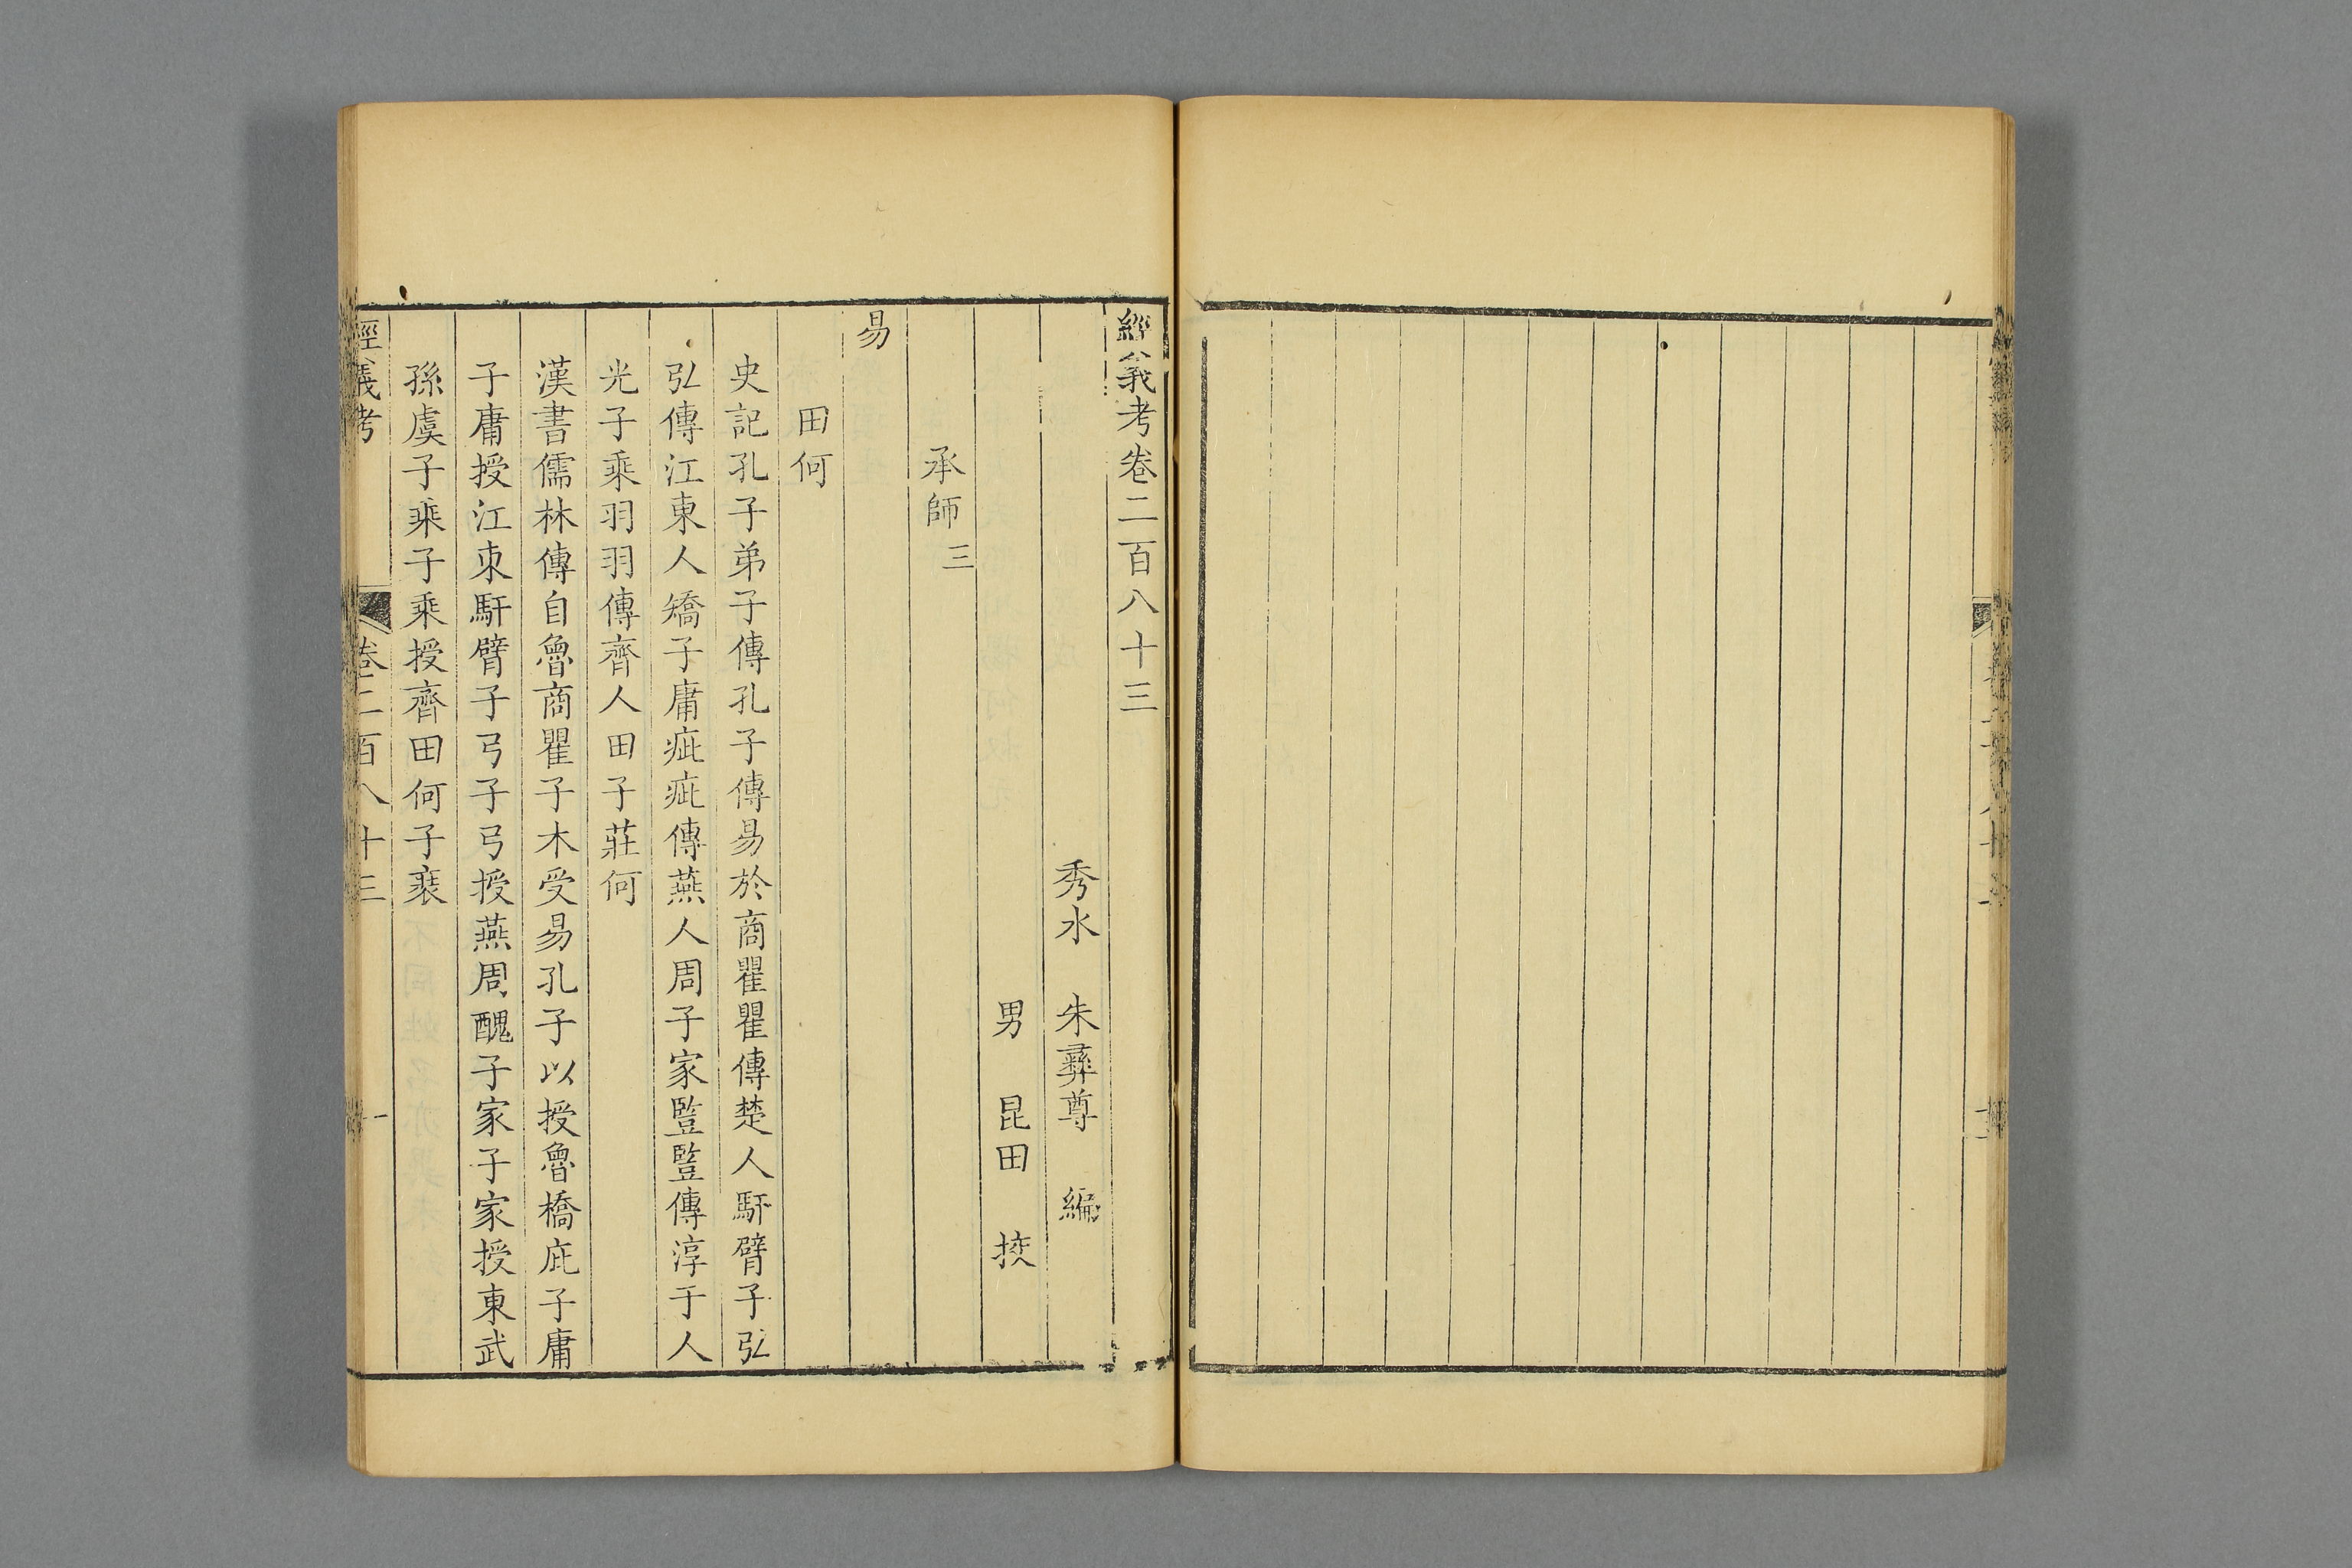 經義考卷二百八十三
秀水 朱彝尊 編
男 昆田 挍
承師三
易
田何
史記孔子弟子傳孔子傳易於商瞿瞿傳楚人馯臂子弘
弘傳江東人矯子庸疵疵傳燕人周子家豎豎傳淳于人
光子乘羽羽傳齊人田子莊何
漢書儒林傳自魯商瞿子木受易孔子以授魯橋庇子庸
子庸授江東馯臂子弓子弓授燕周醜子家子家授東武
孫虞子乘子乘授齊田何子裝
經義考 卷二百八十三 一